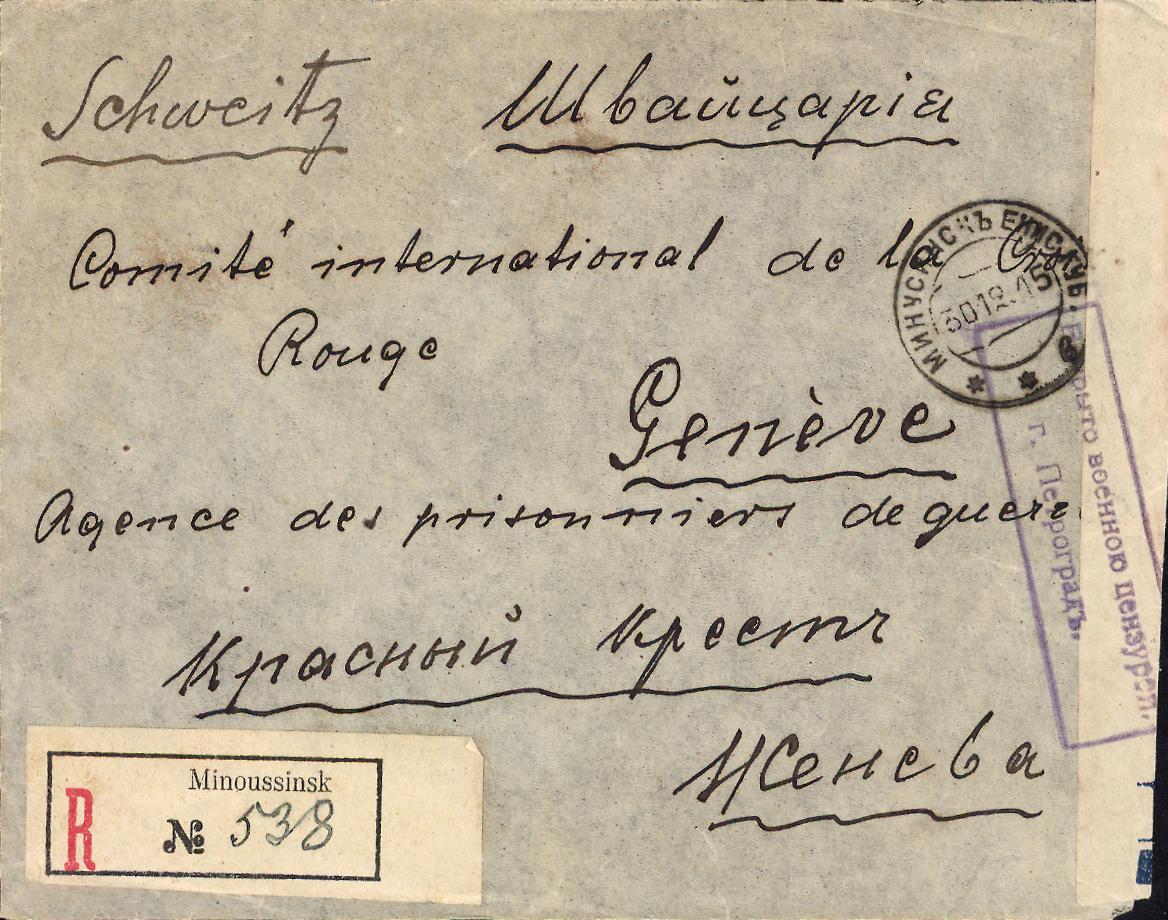 Schweitz Швайцарія
Comité international de la
Rouge
Genève
Agence des prisonniers de guerre
Красный Крестъ
Женева
МИНУСИНСКЪ ЕНИС. ГУБ.
30.12.15
военною цензурой.
г. Петроградъ.
Minoussinsk
R № 538